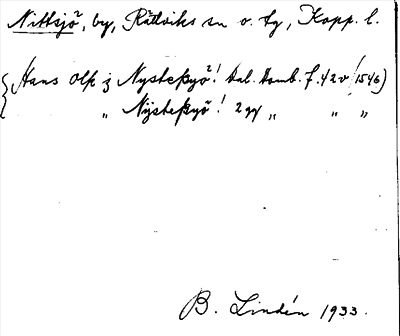 Nittsjö, by, Rättviks sn o. tg, Kopp. l.
Hans Olss j Nysteßyö! Dal. Domb. f. 42 v (1546)
„ Nÿsteßyö! 2 gg „ „ „
B. Lindén 1933.